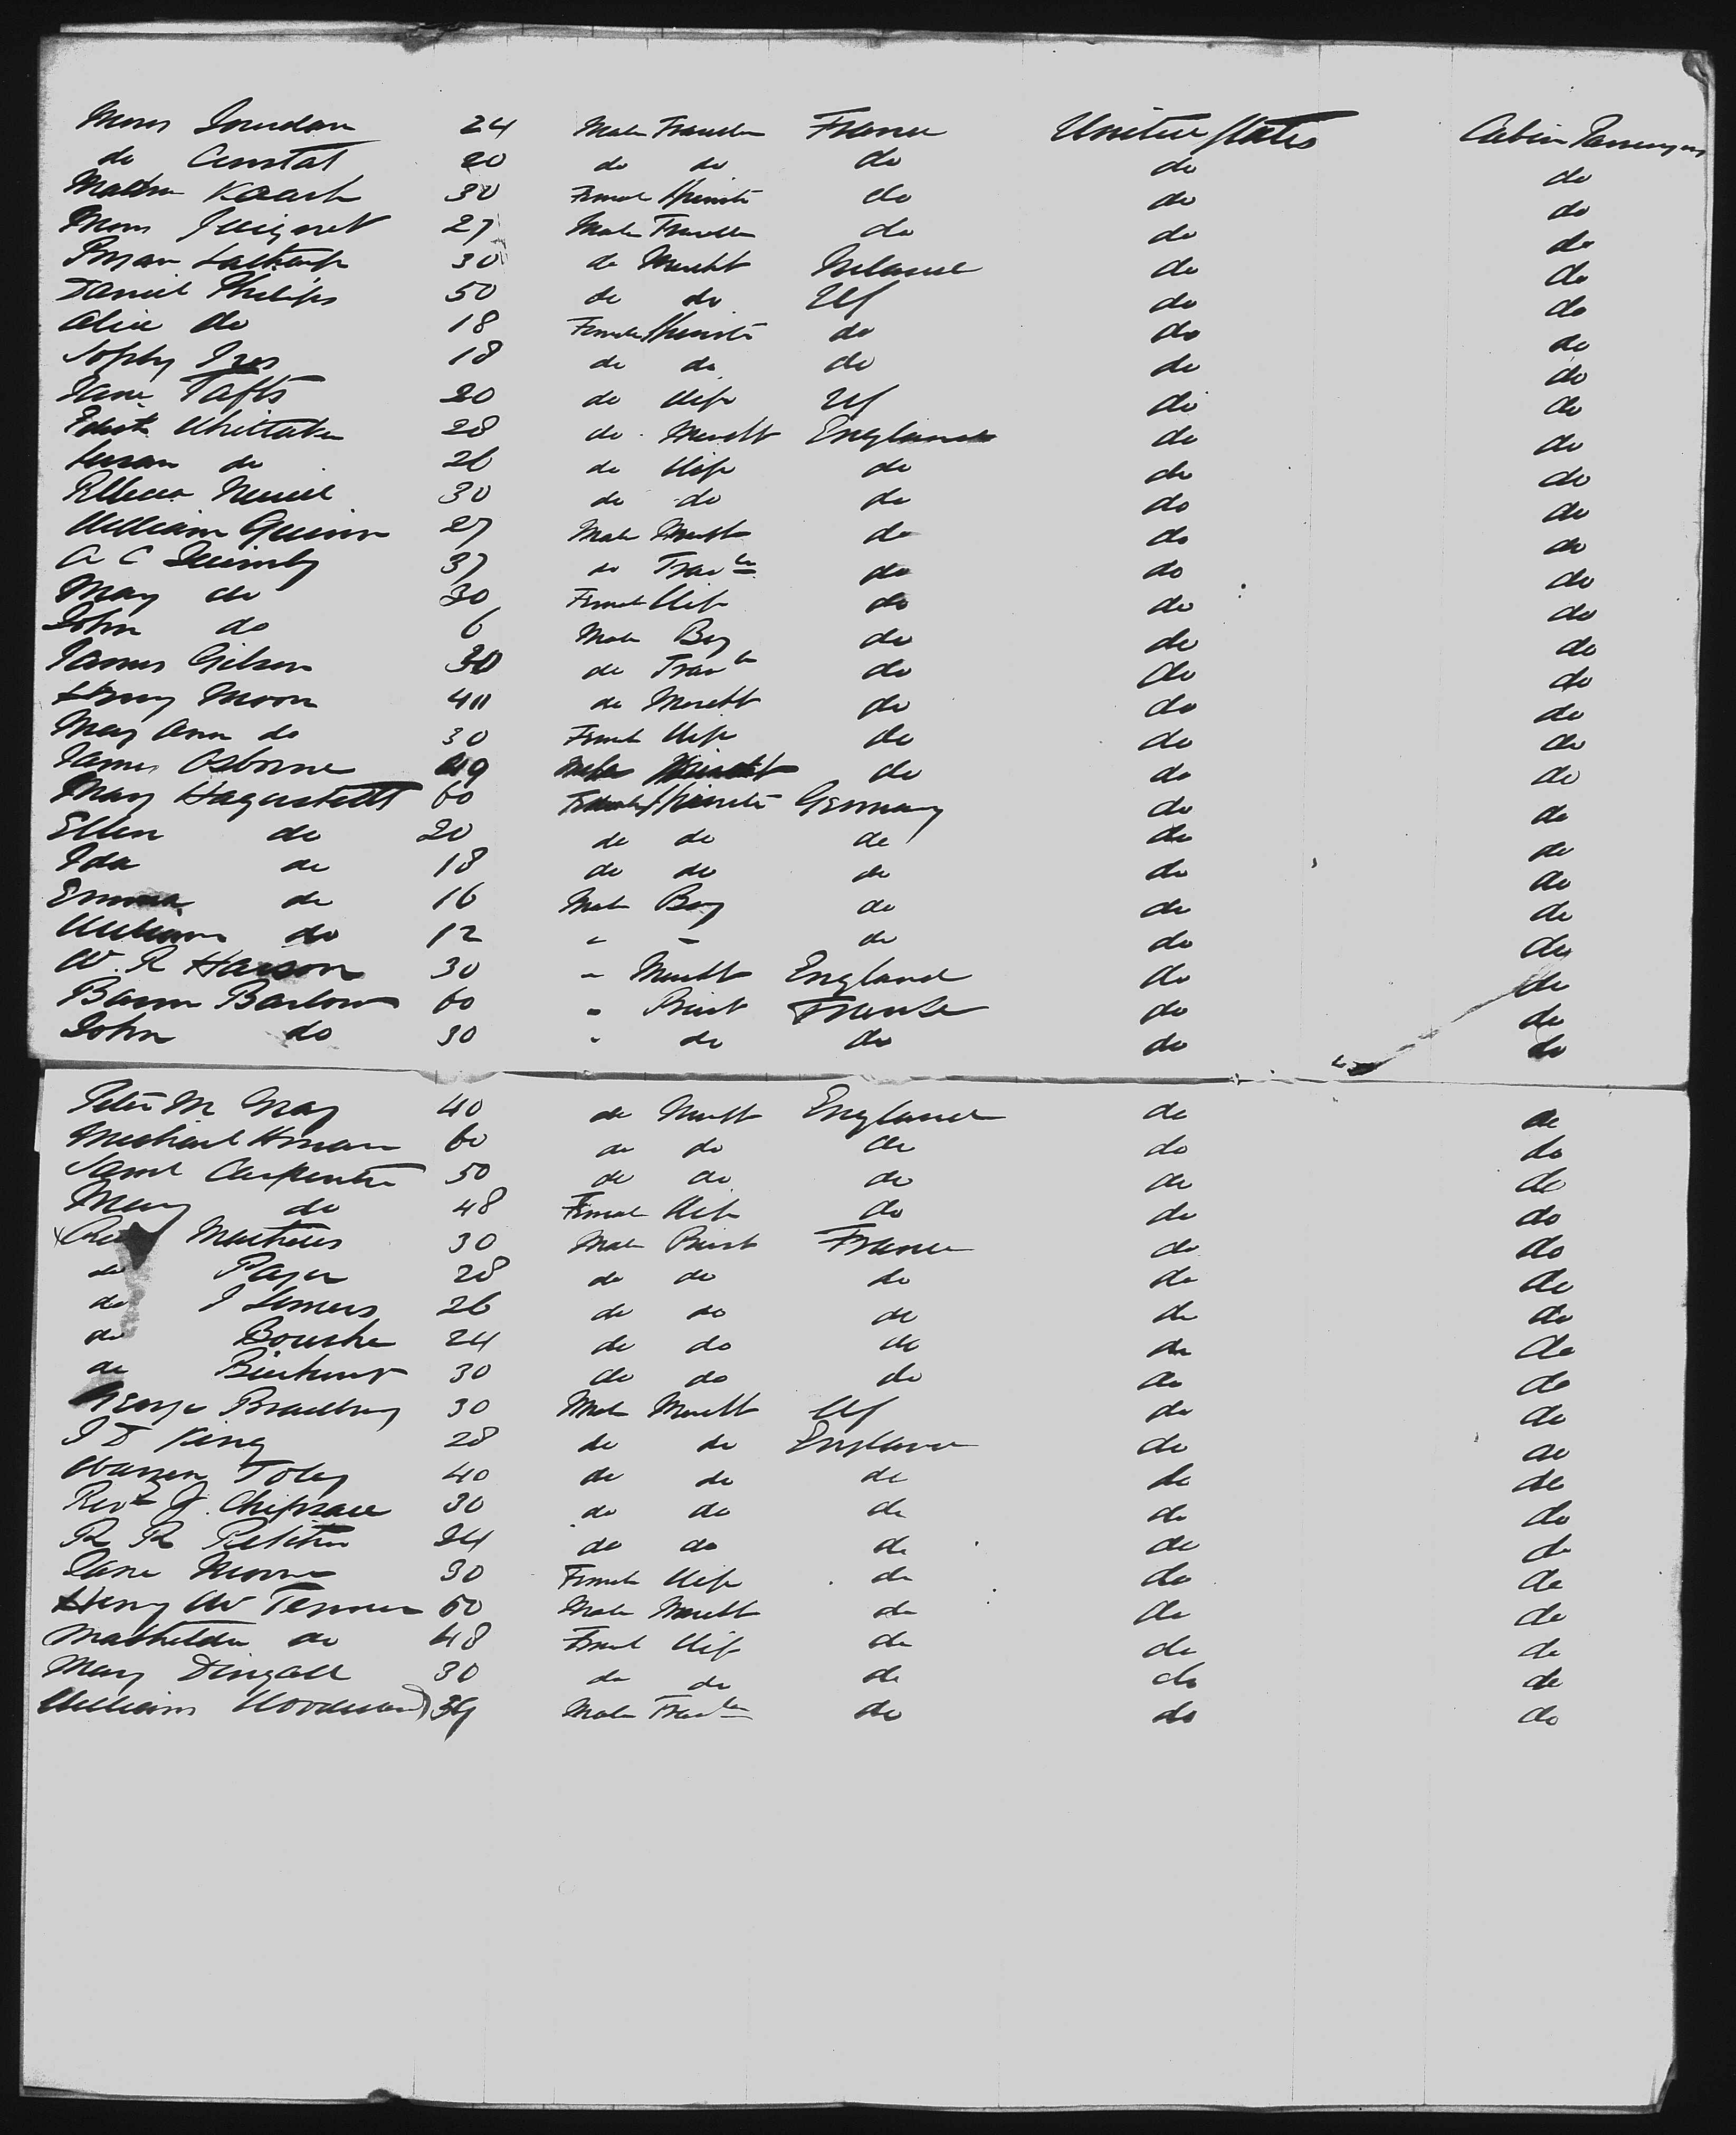 Mons Jourdan 24 Male Traveller France United States Cabin Passengers
do Constat 20 do do do do do
Madm Kaach 30 Female Spinster do do do
Mons Juignet 27 Male Traveller do do do
30 do Mercht Ireland do do
Daniel Philips 50 do do US do do
Alice do 18 Female Spinster do do do
Sophy Ives 18 do do do do do
Jane Tafts 20 do Wife US do do
Edwth Whittaker 28 do Mercht England do do
Susan do 26 do Wife do do do
Rebecca 30 do do do do do
William Quinn 27 Male Mercht do do do
A C Quimby 37 do Travlr do do do
Mary do 30 Female Wife do do do
John do 6 Male Boy do do do
James Gilson 30 do Travlr do do do
Henry Moon 40 do Mercht do do do
Mary Ann do 30 Female Wife do do do
James Osborne 49 Male do do do
Mary Hagustedt 60 Female Spinster Germany do do
Ellen do 20 do do do do do
Ida do 18 do do do do do
Emma do 16 Male Boy do do do
William do 12 " " do do do
W. R Harson 30 " Mercht England do do
Baron Barlow 60 " Priest France do do
John do 30 " do do do do
Peter M Gray 40 do Mercht England do do
Michael 60 do do do do do
Saml Carpenter 50 do do do do do
Mary do 48 Female Wife do do do
Mathews 30 Male Priest France do do
do Pager 28 do do do do do
do J Lemers 26 do do do do do
do Bourke 24 do do do do do
do 30 do do do do do
George Bradbury 30 Male Mercht US do do
J D King 28 do do England do do
Warren Tobey 40 do do do do do
Revd J. Chipsace 30 do do do do do
R R 24 do do do do do
Jane Moore 30 Female Wife do do do
Henry W Tenner 60 Male Mercht do do do
Mathilda do 48 Female Wife do do do
Mary Dingall 30 do do do do do
William Woodward 39 Male Travlr do do do